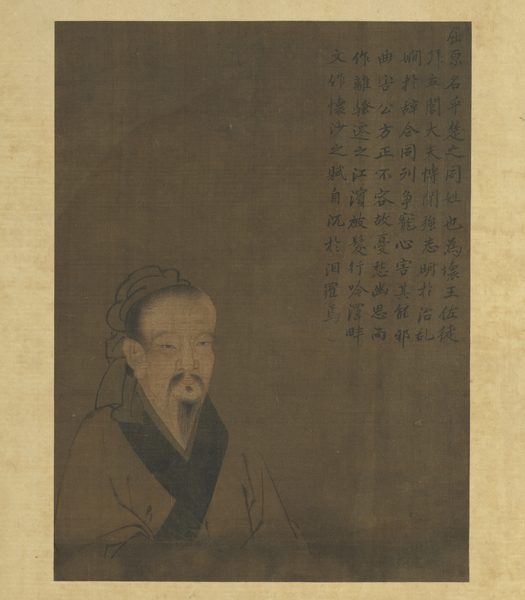 屈原名平楚之同姓也為懷王佐徒
閭大夫博聞強志明於治乱
嫻於辭令同列爭寵心害其能邪
曲害公方正不容故憂愁幽思而
作離騷遷之江濱被髮行吟澤畔
文作懷沙之賦自沉於汨羅焉